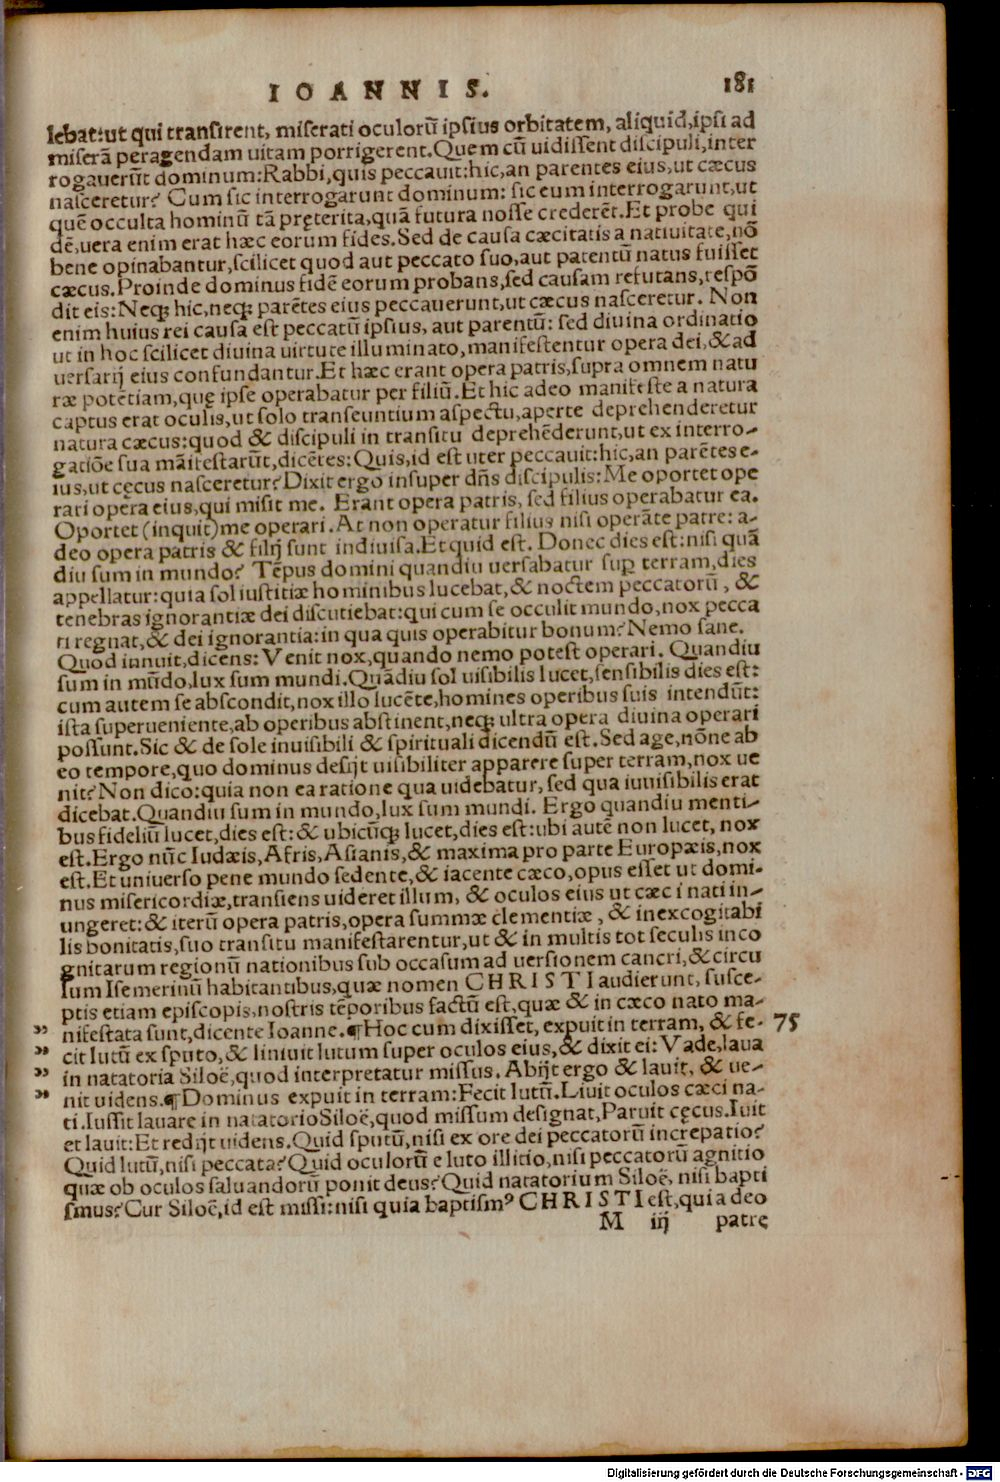 IOANNIS. 181
lebat:ut qui transirent, miserati oculorū ipsius orbitatem, aliquid,ipsi ad
miserā peragendam uitam porrigerent.Quem cū uidissent discipuli,inter
rogauerūt dominum:Rabbi,quis peccauit:hic,an parentes eius,ut cæcus
nasceretur? Cum sic interrogarunt dominum: sic eum interrogarunt,ut
quē occulta hominū tā pręterita,quā futura nosse crederēt.Et probe qui
dē,uera enim erat hæc eorum fides.Sed de causa cæcitatis a natiuitate,nō
bene opinabantur,scilicet quod aut peccato suo,aut parentū natus fuisset
cæcus.Proinde dominus fidē eorum probans,sed causam refutans,respō
dit eis:Neq; hic,neq; parētes eius peccauerunt,ut cæcus nasceretur. Non
enim huius rei causa est peccatū ipsius, aut parentū: sed diuina ordinatio
ut in hoc scilicet diuina uirtute illuminato,manifestentur opera dei,& ad
uersarij eius confundantur.Et hæc erant opera patris,supra omnem natu
ræ potētiam,quę ipse operabatur per filiū.Et hic adeo manifeste a natura
captus erat oculis,ut solo transeuntium aspectu,aperte deprehenderetur
natura cæcus:quod & discipuli in transitu deprehēderunt,ut ex interro-
gatiōe sua māifestarūt,dicētes:Quis,id est uter peccauit:hic,an parētes e-
ius,ut cęcus nasceretur?Dixit ergo insuper dñs discipulis:Me oportet ope
rari opera eius,qui misit me. Erant opera patris, sed filius operabatur ea.
Oportet (inquit)me operari.At non operatur filius nisi operāte patre: a-
deo opera patris & filij sunt indiuisa.Et quid est. Donec dies est:nisi quā
diu sum in mundo? Tēpus domini quandiu uersabatur sup terram,dies
appellatur:quia sol iustitiæ hominibus lucebat,& noctem peccatorū , &
tenebras ignorantiæ dei discutiebat:qui cum se occulit mundo,nox pecca
ti regnat,& dei ignorantia:in qua quis operabitur bonum?Nemo sane.
Quod innuit,dicens: Venit nox,quando nemo potest operari. Quandiu
sum in mūdo,lux sum mundi.Quādiu sol uisibilis lucet,sensibilis dies est:
cum autem se abscondit,nox illo lucēte,homines operibus suis intendūt:
ista superueniente,ab operibus abstinent,neq; ultra opera diuina operari
possunt.Sic & de sole inuisibili & spirituali dicendū est.Sed age,nōne ab
eo tempore,quo dominus desijt uisibiliter apparere super terram,nox ue
nit?Non dico:quia non ea ratione qua uidebatur, sed qua iuuisibilis erat
dicebat.Quandiu sum in mundo,lux sum mundi. Ergo quandiu menti-
bus fideliū lucet,dies est:& ubicūq; lucet,dies est:ubi autē non lucet, nox
est.Ergo nūc Iudæis,Afris,Asianis,& maxima pro parte Europæis,nox
est.Et uniuerso pene mundo sedente,& iacente cæco,opus esset ut domi-
nus misericordiæ,transiens uideret illum, & oculos eius ut cæci nati in-
ungeret:& iterū opera patris,opera summæ clementiæ , & inexcogitabi
lis bonitatis,suo transitu manifestarentur,ut & in multis tot seculis inco
gnitarum regionū nationibus sub occasum ad uersionem cancri,& circu
lum Isemerinū habitantibus,quæ nomen CHRISTI audierunt, susce-
ptis etiam episcopis,nostris tēporibus factū est,quæ & in cæco nato ma-
nifestata sunt,dicente Ioanne.¶Hoc cum dixisset, expuit in terram, & fe- 75
cit lutū ex sputo,& liniuit lutum super oculos eius,& dixit ei: Vade,laua
in natatoria Siloë,quod interpretatur missus. Abijt ergo & lauit, & ue-
nit uidens.¶Dominus expuit in terram:Fecit lutū.Liuit oculos cæci na-
ti.Iussit lauare in natatorio Siloë,quod missum designat,Paruit cęcus.Iuit
et lauit:Et redijt uidens.Quid sputū,nisi ex ore dei peccatorū increpatio?
Quid lutū,nisi peccata?Quid oculorū e luto illitio,nisi peccatorū agnitio
quæ ob oculos saluandorū ponit deus?Quid natatorium Siloë, nisi bapti
smus?Cur Siloë,id est missi:nisi quia baptism⁹ CHRISTI est,qui a deo
M iij patre
Digitalisierung gefördert durch die Deutsche Forschungsgemeinschaft - DFG